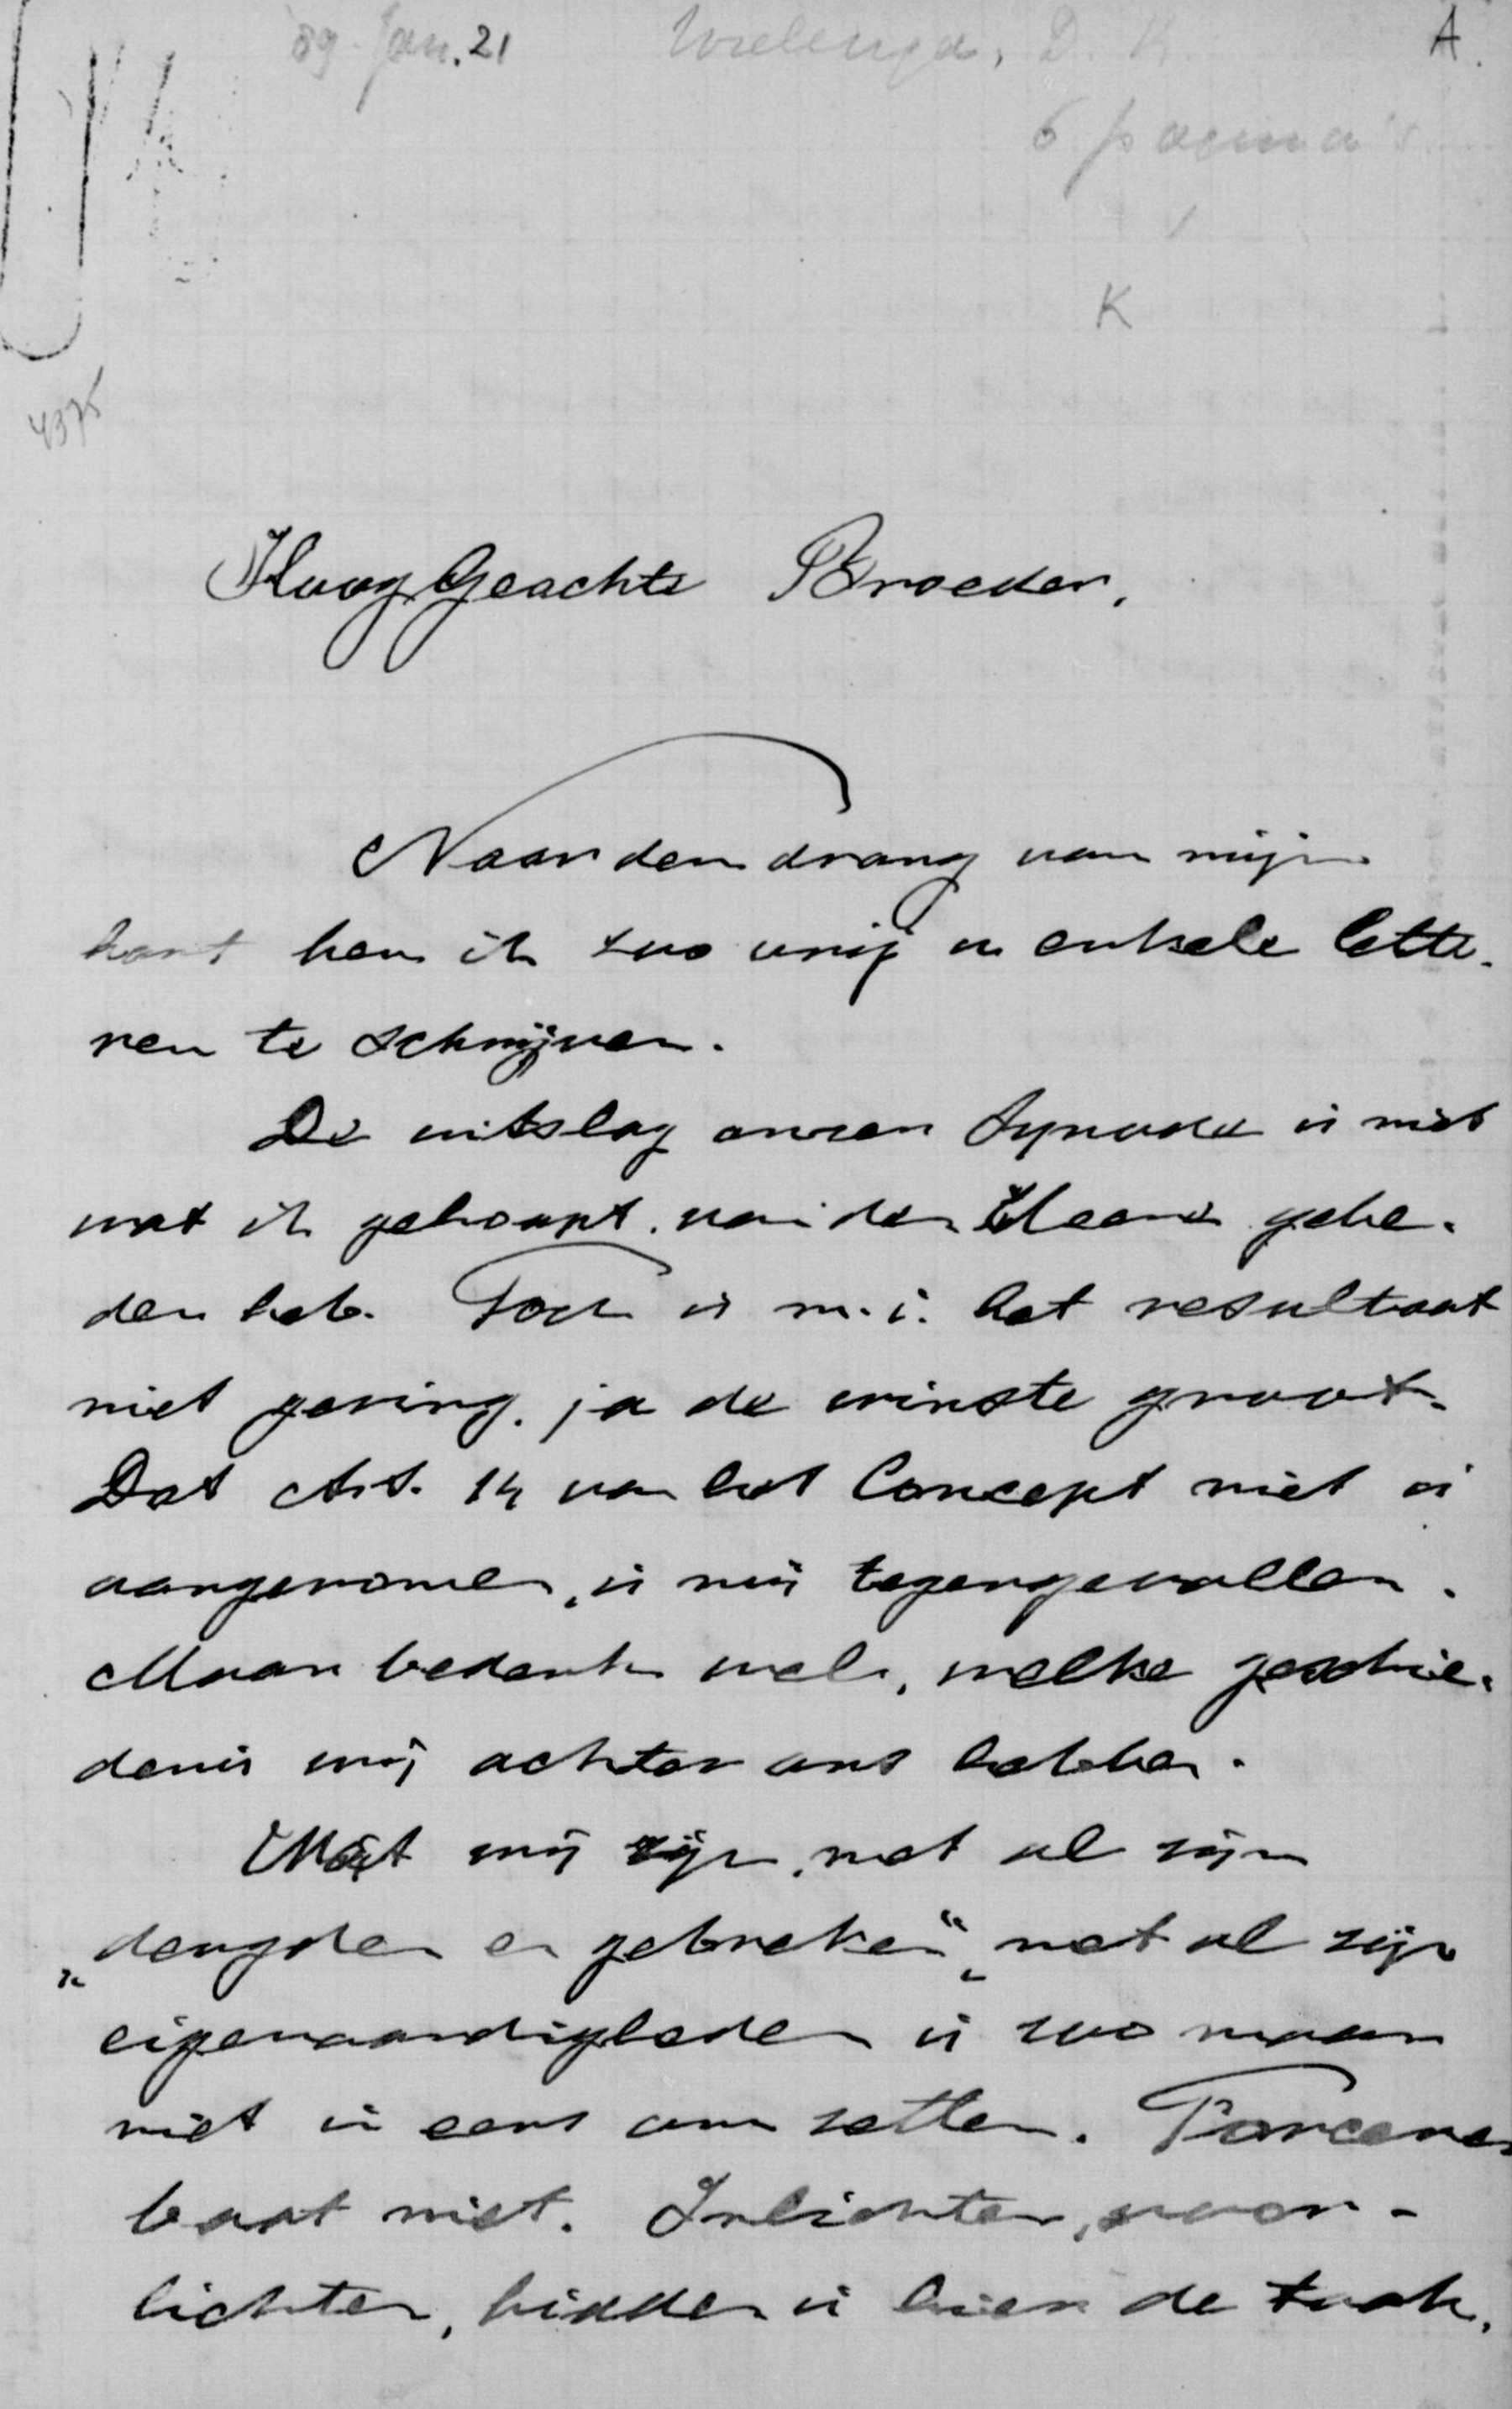 89 Jan. 21 Wielenga, D. K. A.
6 pagina's
K
4375
HoogGeachte Broeder,
Naar den drang van mijn
hart ben ik zoo vrij u enkele lette-
ren te schrijven.
De uitslag onzer Synode is niet
wat ik gehoopt, van den Heere gebe-
den heb. Toch is m.i. het resultaat
niet gering, ja de winste groot.
Dat Art. 14 van het Concept niet is
aangenomen, is mij tegengevallen.
Maar bedenk wel, welke geschie-
denis wij achter ons hebben.
Wat wij zijn, met al zijn
„deugden en gebreken“, met al zijn
eigenaardigheden is zoo maar
niet in eens om zetten. Forceeren
baat niet. Inlichten, voor-
lichten, bidden is hier de taak.